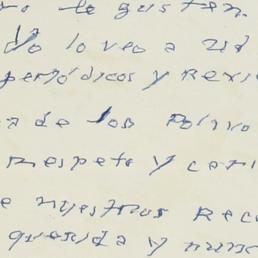 no le gusten
Yo lo veo a Ud
periódicos y Revis
a de los Polivo
Respeto y cari
e nuestros Reco
querida y nunc